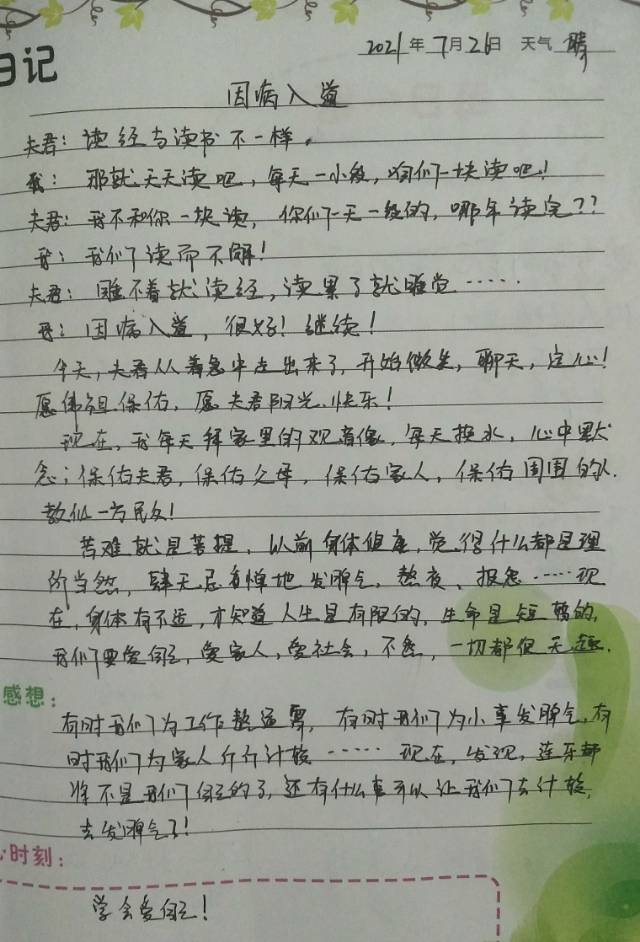 2021年7月26日 天气 晴
日记
因病入道
夫君：读经与读书不一样。
我：那就天天读吧，每天一小段，咱们一块读吧！
夫君：我不和你一块读，你们一天一段的，哪年读完？？
我：我们读而不解！
夫君：睡不着就读经，读累了就睡觉……
我：因病入道，很好！继续！
今天，夫君从着急中走出来了，开始微笑，聊天，定心！
愿佛祖保佑，愿夫君阳光快乐！
现在，我每天拜家里的观音像，每天换水，心中默
念；保佑夫君，保佑父母，保佑家人，保佑周围的人
教化一方民众！
苦难就是菩提，以前身体健康，觉得什么都是理
所当然，肆无忌惮地发脾气，熬夜、报怨……现
在，身体有不适，才知道人生是有限的，生命是短暂的，
我们要爱自己，爱家人，爱社会，不然，一切都很无趣。
感想：
有时我们为工作熬通宵，有时我们为小事发脾气，有
时我们为家人斤斤计较……现在，发现，连呼都
将不是我们自己的了，还有什么事可以让我们去计较，
去发脾气了！
心时刻：
学会爱自己！